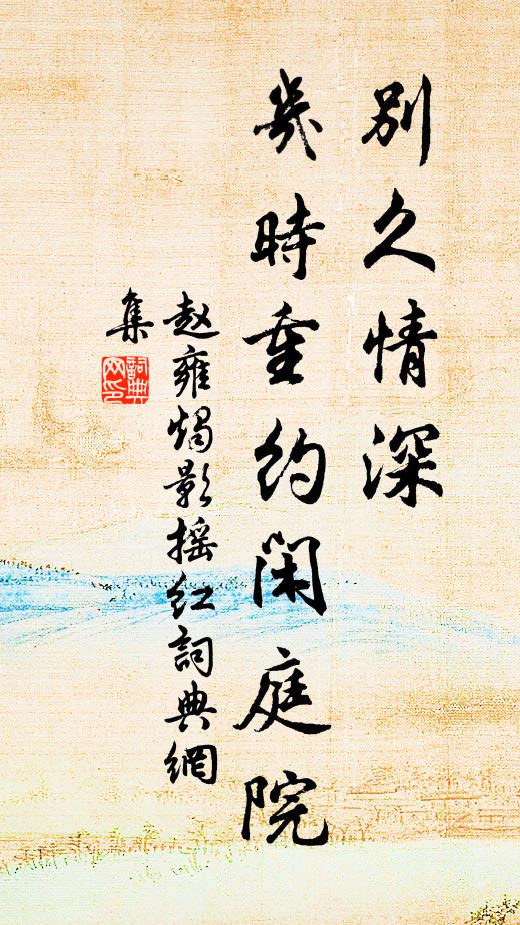 别久情深
幾時重約閑庭院
赵雍燭影摇红詞典網
集
詞典网印